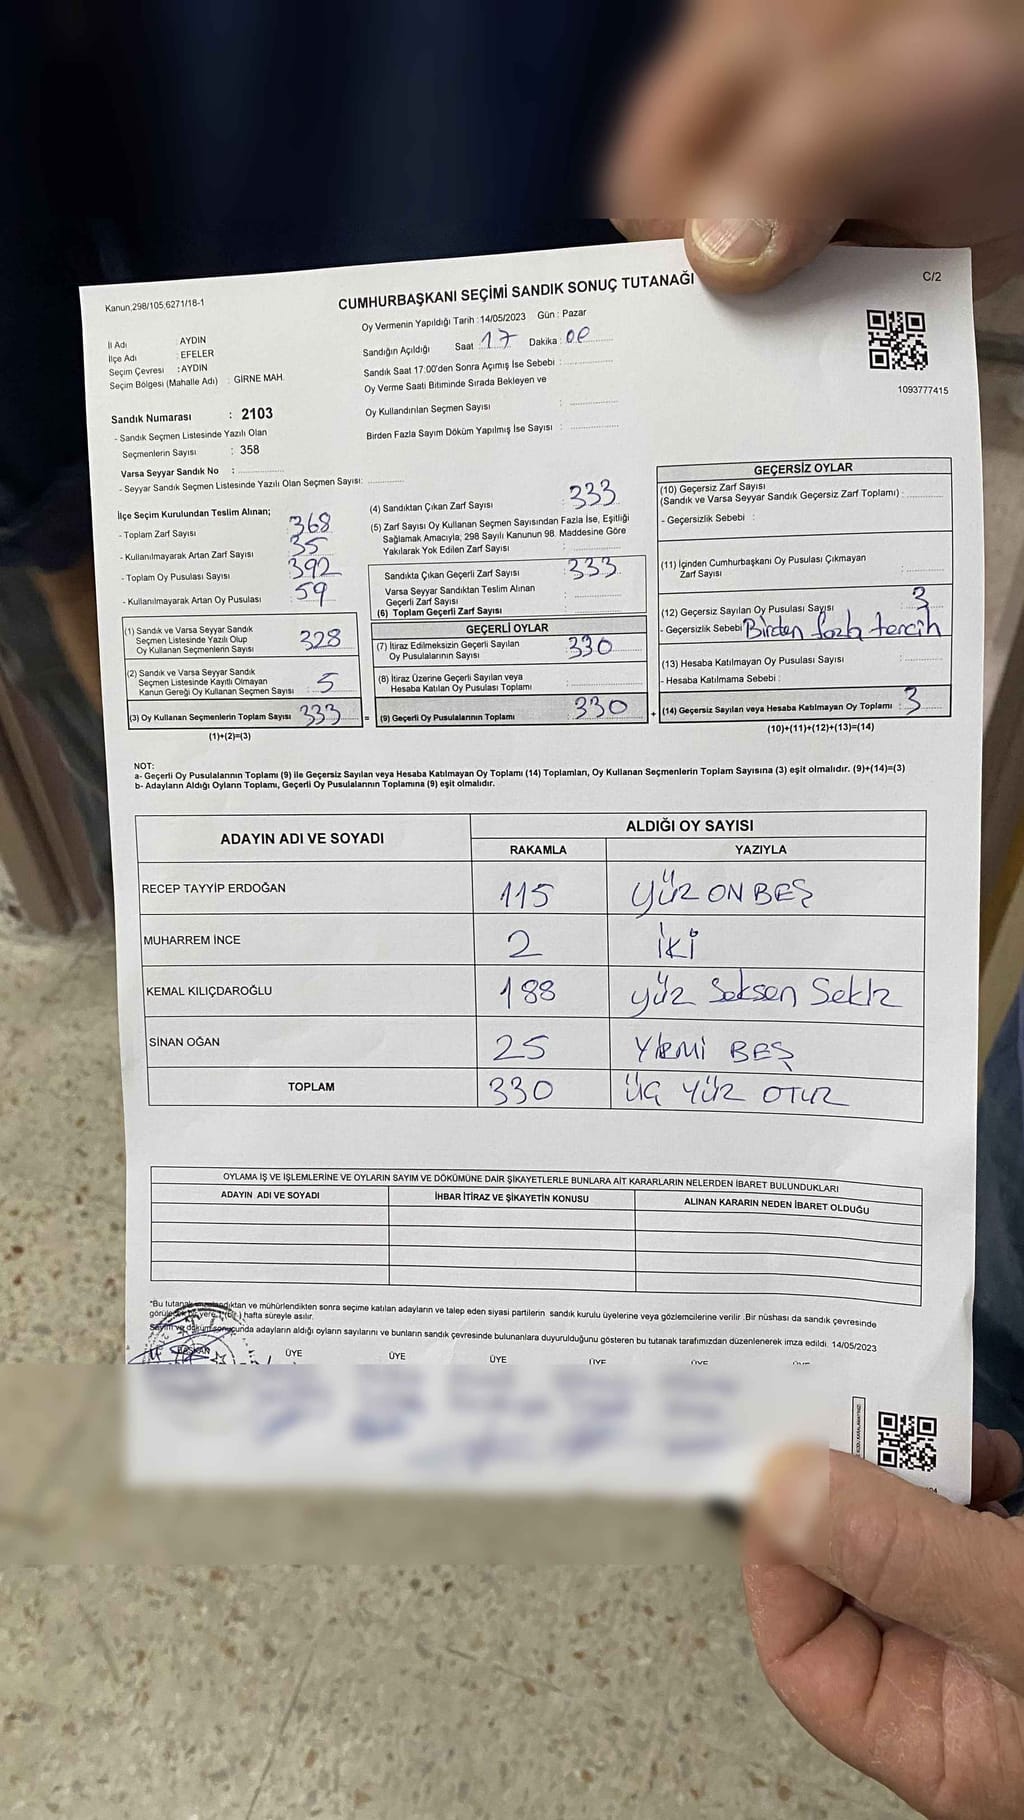 Kanun,298/105,6271/18-1
C/2
CUMHURBAŞKANI SEÇİMİ SANDIK SONUÇ TUTANAĞI
Oy Vermenin Yapıldığı Tarih : 14/05/2023 Gün : Pazar
İl Adı : AYDIN
İlçe Adı : EFELER
Seçim Çevresi : AYDIN
Seçim Bölgesi (Mahalle Adı) : GİRNE MAH.
Sandığın Açıldığı Saat 17 Dakika : 00
Sandık Saat 17:00'den Sonra Açımış İse Sebebi :
Oy Verme Saati Bitiminde Sırada Bekleyen ve
Oy Kullandırılan Seçmen Sayısı :
Birden Fazla Sayım Döküm Yapılmış İse Sayısı :
1093777415
Sandık Numarası : 2103
- Sandık Seçmen Listesinde Yazılı Olan
Seçmenlerin Sayısı : 358
Varsa Seyyar Sandık No :
- Seyyar Sandık Seçmen Listesinde Yazılı Olan Seçmen Sayısı:
İlçe Seçim Kurulundan Teslim Alınan;
- Toplam Zarf Sayısı : 368
- Kullanılmayarak Artan Zarf Sayısı : 35
- Toplam Oy Pusulası Sayısı : 392
- Kullanılmayarak Artan Oy Pusulası : 59
(1) Sandık ve Varsa Seyyar Sandık
Seçmen Listesinde Yazılı Olup
Oy Kullanan Seçmenlerin Sayısı 328
(2) Sandık ve Varsa Seyyar Sandık
Seçmen Listesinde Kayıtlı Olmayan
Kanun Gereği Oy Kullanan Seçmen Sayısı 5
(3) Oy Kullanan Seçmenlerin Toplam Sayısı 333
(1)+(2)=(3)
(4) Sandıktan Çıkan Zarf Sayısı : 333
(5) Zarf Sayısı Oy Kullanan Seçmen Sayısından Fazla İse, Eşitliği
Sağlamak Amacıyla; 298 Sayılı Kanunun 98. Maddesine Göre
Yakılarak Yok Edilen Zarf Sayısı :
Sandıkta Çıkan Geçerli Zarf Sayısı : 333
Varsa Seyyar Sandıktan Teslim Alınan
Geçerli Zarf Sayısı :
(6) Toplam Geçerli Zarf Sayısı :
GEÇERLİ OYLAR
(7) İtiraz Edilmeksizin Geçerli Sayılan
Oy Pusulalarının Sayısı : 330
(8) İtiraz Üzerine Geçerli Sayılan veya
Hesaba Katılan Oy Pusulası Toplamı :
= (9) Geçerli Oy Pusulalarının Toplamı : 330
GEÇERSİZ OYLAR
(10) Geçersiz Zarf Sayısı
(Sandık ve Varsa Seyyar Sandık Geçersiz Zarf Toplamı) :
- Geçersizlik Sebebi :
(11) İçinden Cumhurbaşkanı Oy Pusulası Çıkmayan
Zarf Sayısı :
(12) Geçersiz Sayılan Oy Pusulası Sayısı : 3
- Geçersizlik Sebebi Birden fazla tercih
(13) Hesaba Katılmayan Oy Pusulası Sayısı :
- Hesaba Katılmama Sebebi :
+ (14) Geçersiz Sayılan veya Hesaba Katılmayan Oy Toplamı : 3
(10)+(11)+(12)+(13)=(14)
NOT:
a- Geçerli Oy Pusulalarının Toplamı (9) ile Geçersiz Sayılan veya Hesaba Katılmayan Oy Toplamı (14) Toplamları, Oy Kullanan Seçmenlerin Toplam Sayısına (3) eşit olmalıdır. (9)+(14)=(3)
b- Adayların Aldığı Oyların Toplamı, Geçerli Oy Pusulalarının Toplamına (9) eşit olmalıdır.
ADAYIN ADI VE SOYADI ALDIĞI OY SAYISI
RAKAMLA YAZIYLA
RECEP TAYYİP ERDOĞAN 115 YÜZ ON BEŞ
MUHARREM İNCE 2 İKİ
KEMAL KILIÇDAROĞLU 188 yüz Seksen Sekiz
SİNAN OĞAN 25 YİRMİ BEŞ
TOPLAM 330 ÜÇ YÜZ OTUZ
OYLAMA İŞ VE İŞLEMLERİNE VE OYLARIN SAYIM VE DÖKÜMÜNE DAİR ŞİKAYETLERLE BUNLARA AİT KARARLARIN NELERDEN İBARET BULUNDUKLARI
ADAYIN ADI VE SOYADI İHBAR İTİRAZ VE ŞİKAYETİN KONUSU ALINAN KARARIN NEDEN İBARET OLDUĞU
*Bu tutanak ve mühürlendikten sonra seçime katılan adayların ve talep eden siyasi partilerin sandık kurulu üyelerine veya gözlemcilerine verilir .Bir nüshası da sandık çevresinde
hafta süreyle asılır.
Sayım ve döküm sonucunda adayların aldığı oyların sayılarını ve bunların sandık çevresinde bulunanlara duyurulduğunu gösteren bu tutanak tarafımızdan düzenlenerek imza edildi. 14/05/2023
BAŞKAN ÜYE ÜYE ÜYE ÜYE ÜYE